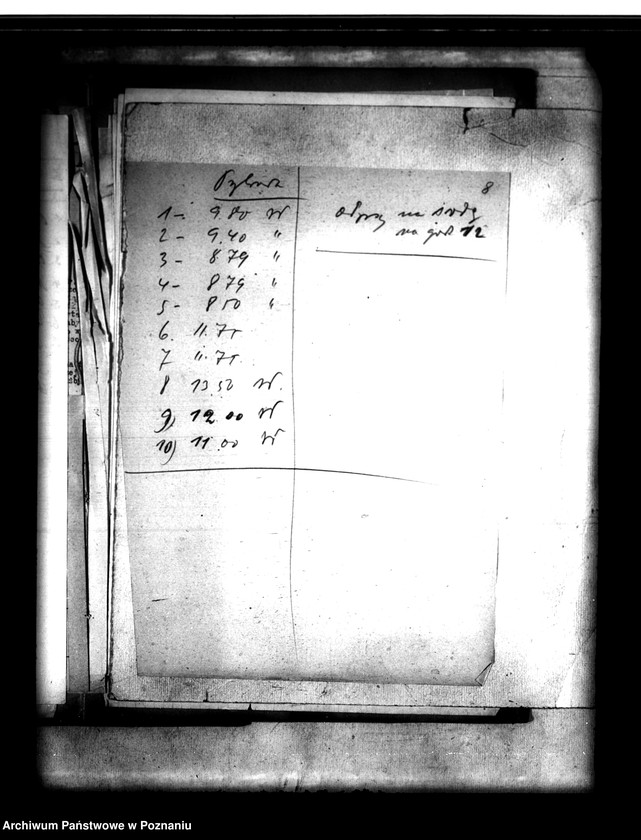 8
1 - 9.80 w
2 - 9.40 "
3 - 8.79 "
4 - 8.79 "
5 - 8.50 "
6. 11.75
7 11.75
8 13.50 w.
9) 12.00 w
10) 11.00 w
na środę
na god 12
Archiwum Państwowe w Poznaniu